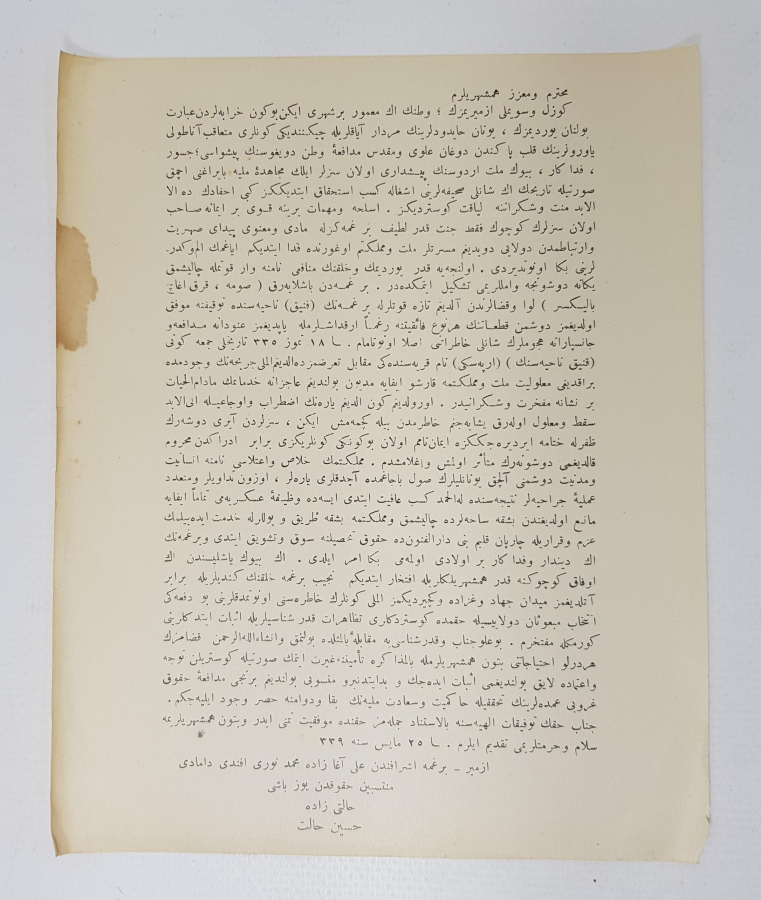 محترم ومعزز همشهریلرم
کوزل وسویملی ازمیریمزك ؛ وطنك اك معمور برشهری ایکن بوکون خرابه‌لردن عبارت
بولنان یوردیمزك ، یونان حایدودلرینك مردار آیاقلریله چیکنندیکی کونلری متعاقب آناطولی
یاورولرینك قلب پاکندن دوغان علوی ومقدس مدافعهٔ وطن دویغوسنك پیشواسی؛ جسور
، فداکار ، بیوك ملت اردوسنك پیشداری اولان سزلر ایلك مجاهدهٔ ملیه بایراغنی آچمق
صورتیله تاریخك اك شانلی صحیفه‌لرینی اشغاله کسب استحقاق ایتدیککز کبی احفادك ده الا
الابد منت وشکراننه لیاقت کوستردیکز . اسلحه ومهمات یرینه قوی بر ایمانه صاحب
اولان سزلرك کوچوك فقط جنت قدر لطیف بر غمه‌کزله مادی ومعنوی پیدای صهریت
وارتباطمدن دولایی دویدیغم مسرتلر ملت ومملکتم اوغورنده فدا ایتدیکم ایاغمك الم وکدر
لرینی بکا اونوتدیردی . اولنجه‌یه قدر یوردیمك وخلقنك منافعی نامنه وار قوتمله چالیشمق
یکانه دوشونجه واماللریمی تشکیل ایتمکده‌در . بر غمه‌دن باشلایه‌رق ( صومه ، قرق آغاچ
بالیکسر ) لوا وقضالرندن آلدیغم تازه قوتلرله بر غمه‌نك (قنیق) ناحیه‌سنده توقیفنه موفق
اولدیغمز دوشمن قطعاتنك هرنوع فائقیتنه رغماً ارقداشلرمله یاپدیغمز عنودانه مدافعه‌و
جانسپارانه هجوملرك شانلی خاطراتنی اصلا اونوتامام . ١٨ تموز ٣٣٥ تاریخلی جمعه کونی
(قنیق ناحیه‌سنك ) (ارپه‌سکی) نام قریه‌سنده‌کی مقابل تعرضمزده الدیغم الملی جریحه‌نك وجودمده
براقدیغی معلولیت ملت ومملکتمه قارشو ایفایه مدیون بولندیغم عاجزانه خدماتمك مادام الحیات
بر نشانه مفخرت وشکرانیدر . اورولدیغم کون الدیغم یاره‌نك اضطراب واوجاعیله الی الابد
سقط ومعلول اوله‌رق یشایه‌جغم خاطرمدن بیله کچمه‌مش ایکن ، سزلردن آیری دوشه‌رك
ظفرله ختامه ایردیره‌جککزه ایمان تامم اولان بوکونکی کونلریکزی برابر ادراکدن محروم
قالدیغمی دوشونه‌رك متأثر اولمش واغلامشدم . مملکتمك خلاص واعتلاسی نامنه انسانیت
ومدنیت دوشمنی آلچق یونانلیلرك صول باجاغمده آچدقلری یاره‌لر ، اوزون تداویلر ومتعدد
عملیهٔ جراحیه‌لر نتیجه‌سنده له‌الحمد کسب عافیت ایتدی ایسه‌ده وظیفهٔ عسکریه‌می تماماً ایفایه
مانع اولدیغندن بشقه ساحه‌لرده چالیشمق ومملکتمه بشقه طریق و یوللرله خدمت ایده‌بیلمك
عزم وقراریله چارپان قلبم بنی دارالفنونده حقوق تحصیلنه سوق وتشویق ایتدی وبرغمه‌نك
اك دیندار وفداکار بر اولادی اولمه‌می بکا امر ایلدی . اك بیوك یاشلیسندن اك
اوفاق کوچوکنه قدر همشهریلکلریله افتخار ایتدیکم نجیب برغمه خلقنك کندیلریله برابر
آتلدیغمز میدان جهاد وغزاده وکچیردیکمز المی کونلرك خاطره‌سنی اونوتمدقلرینی بو دفعه‌کی
انتخاب مبعوثان دولاییسیله حقمده کوستردکلری تظاهرات قدر شناسیلریله اثبات ایتدکلرینی
کورمکله مفتخرم . بوعلوجناب وقدرشناسی‌یه مقابلهٔ بالمثلده بولنمق وانشاءالله‌الرحمن قضامزك
هردرلو احتیاجاتی بتون همشهریلرمله بالمذاکره تأمیننه غیرت ایتمك صورتیله کوستریلن توجه
واعتماده لایق بولندیغمی اثبات ایده‌جك و بدایتدنبرو منسوبی بولندیغم برنجی مدافعهٔ حقوق
غروبی عمده‌لرینك تحققیله حاکمیت وسعادت ملیه‌نك بقا ودوامنه حصر وجود ایلیه‌جکم .
جناب حقك توفیقات الهیه‌سنه بالاستناد جمله‌مز حقنده موفقیت تمنی ایدر وبتون همشهریلریمه
سلام وحرمتلریمی تقدیم ایلرم . ٢٥ مایس سنه ٣٣٩
ازمیر ـ برغمه اشرافندن علی آغا زاده محمد نوری افندی دامادی
منتسبین حقوقدن یوز باشی
حالتی زاده
حسین حالت